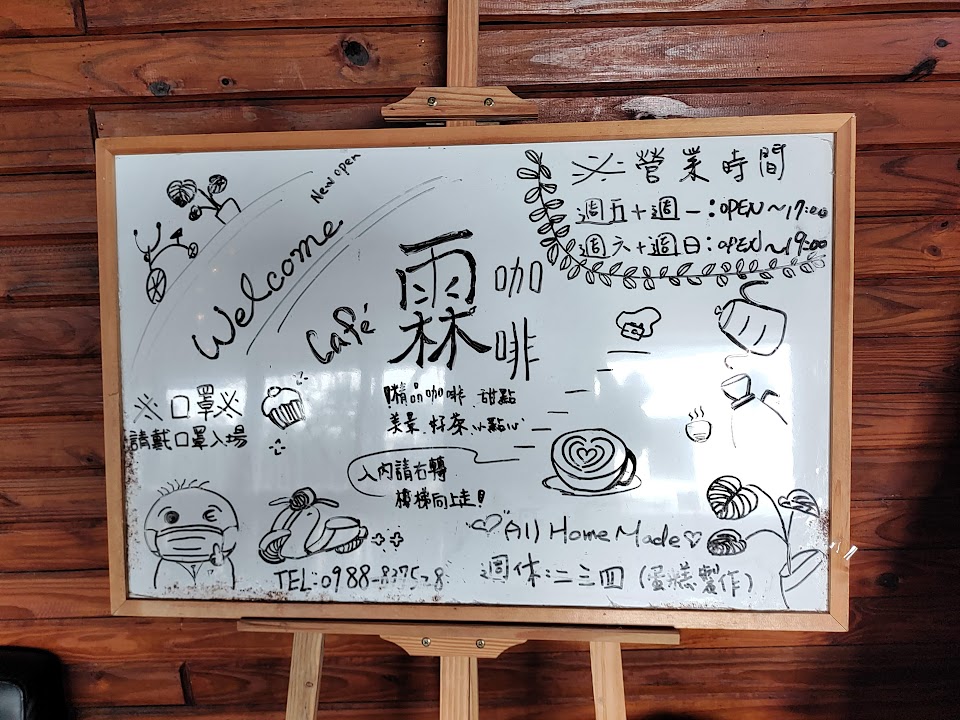 New open
Welcome
Café
霖
咖啡
※營業時間
週五+週一:OPEN~17:00
週六+週日:OPEN~19:00
※口罩※
請戴口罩入場
精品咖啡、甜點
美景、好茶、小點心
入內請右轉
樓梯向上走!
"♡"All Home Made♡
TEL:0988-
週休:二三四(蛋糕製作)